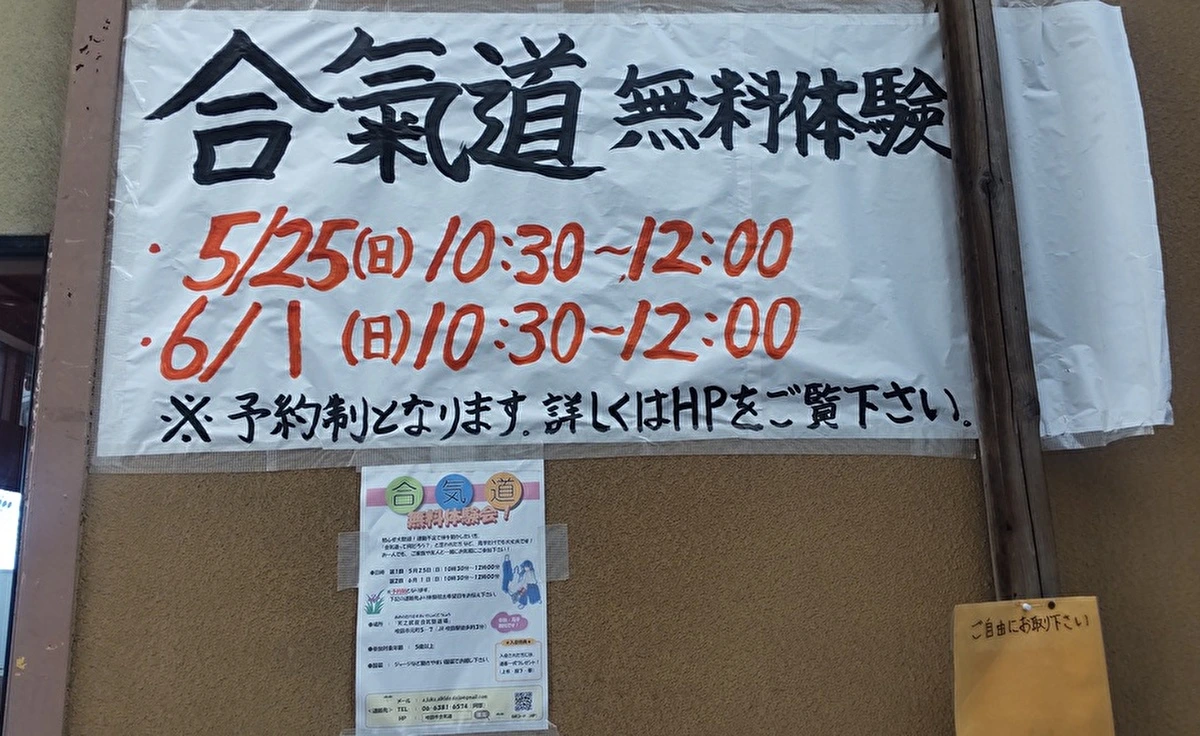 合氣道 無料体験
・5/25(日)10:30~12:00
・6/1 (日)10:30~12:00
※予約制となります。詳しくはHPをご覧下さい。
合気道
無料体験会!
●日時 第1回 5月25日(日)10時30分~12時00分
第2回 6月 1日(日)10時30分~12時00分
●場所:
●参加対象年齢: 5歳以上
●服装: ジャージなど動きやすい服装でお越し下さい。
入会特典
メール:
<連絡先> TEL : 06-6381-6574
HP : 吹田市合気道
ご自由にお取り下さい